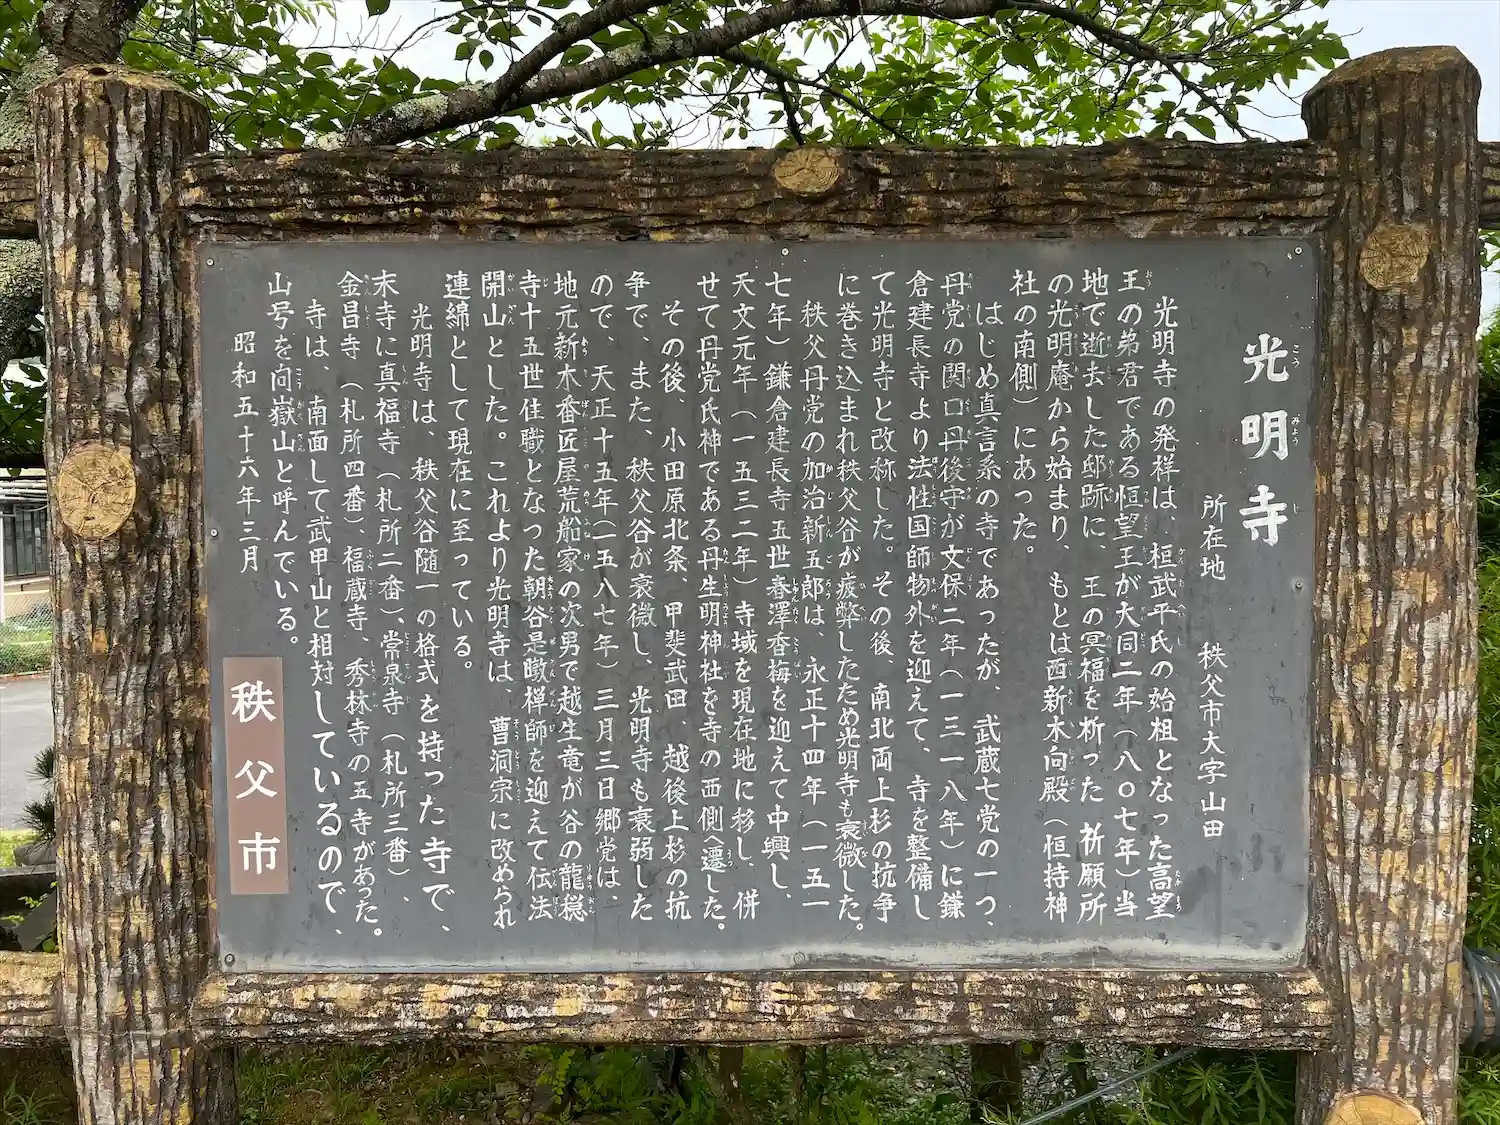 光明寺
所在地　秩父市大字山田
光明寺の発祥は、桓武平氏の始祖となった高望
王の弟君である恒望王が大同二年（八〇七年）当
地で逝去した邸跡に、王の冥福を祈った祈願所
の光明庵から始まり、もとは西新木向殿（恒持神
社の南側）にあった。
はじめ真言系の寺であったが、武蔵七党の一つ、
丹党の関口丹後守が文保二年（一三一八年）に鎌
倉建長寺より法性国師物外を迎えて、寺を整備し
て光明寺と改称した。その後、南北両上杉の抗争
に巻き込まれ秩父谷が疲弊したため光明寺も衰微した。
秩父丹党の加治新五郎は、永正十四年（一五一
七年）鎌倉建長寺五世春澤香梅を迎えて中興し、
天文元年（一五三二年）寺域を現在地に移し、併
せて丹党氏神である丹生明神社を寺の西側へ遷した。
その後、小田原北条、甲斐武田、越後上杉の抗
争で、また、秩父谷が衰微し、光明寺も衰弱した
ので、天正十五年（一五八七年）三月三日郷党は、
地元新木番匠屋荒船家の次男で越生竜が谷の龍穏
寺十五世住職となった朝谷是暾禅師を迎えて伝法
開山とした。これより光明寺は、曹洞宗に改められ
連綿として現在に至っている。
光明寺は、秩父谷随一の格式を持った寺で、
末寺に真福寺（札所二番）、常泉寺（札所三番）、
金昌寺（札所四番）、福蔵寺、秀林寺の五寺があった。
寺は、南面して武甲山と相対しているので、
山号を向嶽山と呼んでいる。
昭和五十六年三月
秩父市